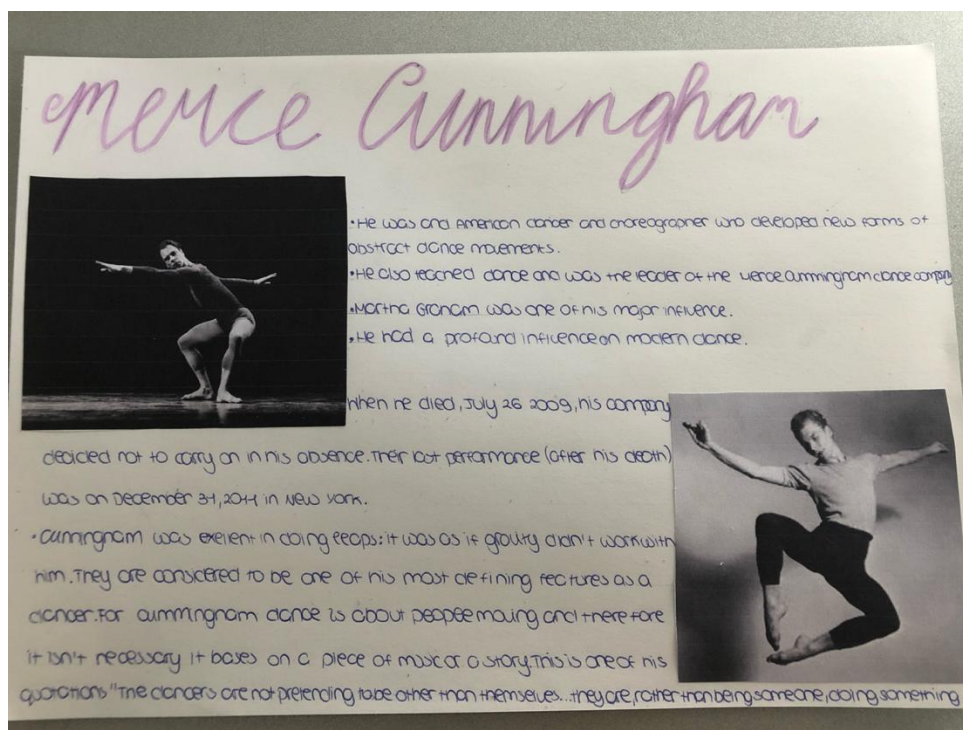 Merce Cunningham
•He was and American dancer and choreographer who developed new forms of
abstract dance movements.
•He also teached dance and was the leader of the Merce Cummingham dance company
•Martha Graham was one of his major influence.
•He had a profound influence on modern dance.
When he died, July 26 2009, his company
decicled not to carry on in his absence. Their last performance (after his death)
was on December 31, 2011 in New York.
•Cunningham was exelent in doing leaps: it was as if gravity didn't work with
him. They are considered to be one of his most defining features as a
dancer. For Cummingham dance is about people moving and therefore
it isn't necessary it bases on a piece of music or a story. This is one of his
quotations "The dancers are not pretending to be other than themselves... they are, rather than being someone, doing something